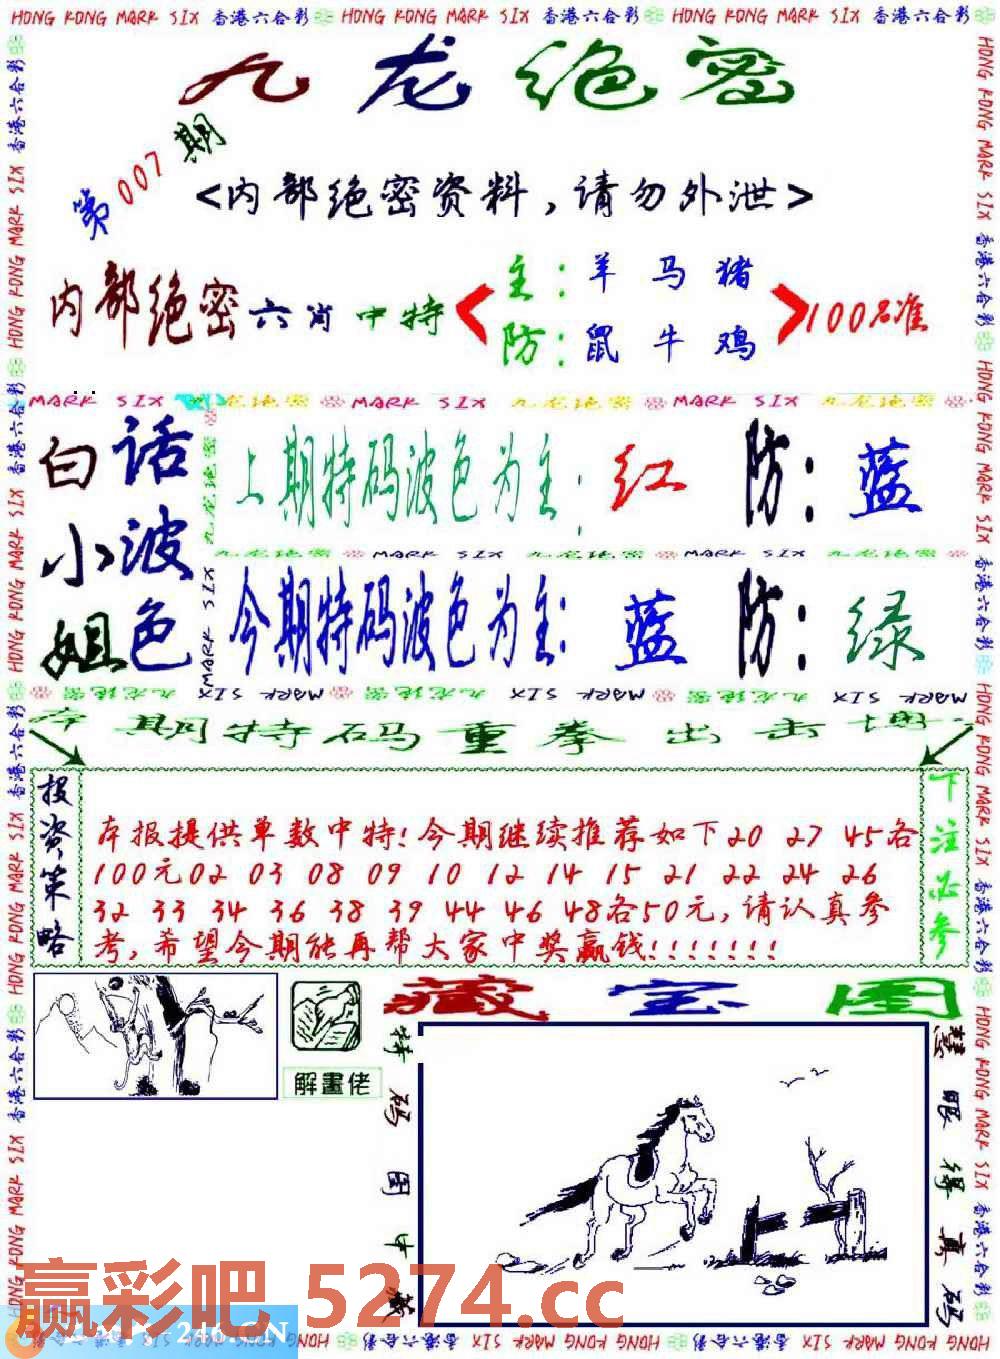 HONG KONG MARK SIX 香港六合彩 HONG KONG MARK SIX 香港六合彩 HONG KONG MARK SIX 香港六合彩
九龙绝密
第007期
<内部绝密资料,请勿外泄>
内部绝密六肖中特
主:羊 马 猪
防:鼠 牛 鸡
100%准
MARK SIX 九龙绝密 MARK SIX 九龙绝密 MARK SIX 九龙绝密
白小姐
话波色
上期特码波色为主:红 防:蓝
九龙绝密 MARK SIX 九龙绝密 MARK SIX 九龙绝密
今期特码波色为主:蓝 防:绿
MARK SIX 九龙绝密 MARK SIX 九龙绝密 MARK SIX 九龙绝密
本期特码重拳出击
投资策略
本报提供单数中特!今期继续推荐如下20 27 45各
100元02 03 08 09 10 12 14 15 21 22 24 26
32 33 34 36 38 39 44 46 48各50元,请认真参
考,希望今期能再帮大家中奖赢钱!!!!!!!
下注必参
藏宝图
解畫佬
特码图中藏
慧眼得真码
赢彩吧 5274.cc
246.CN
HONG KONG MARK SIX 香港六合彩 HONG KONG MARK SIX 香港六合彩